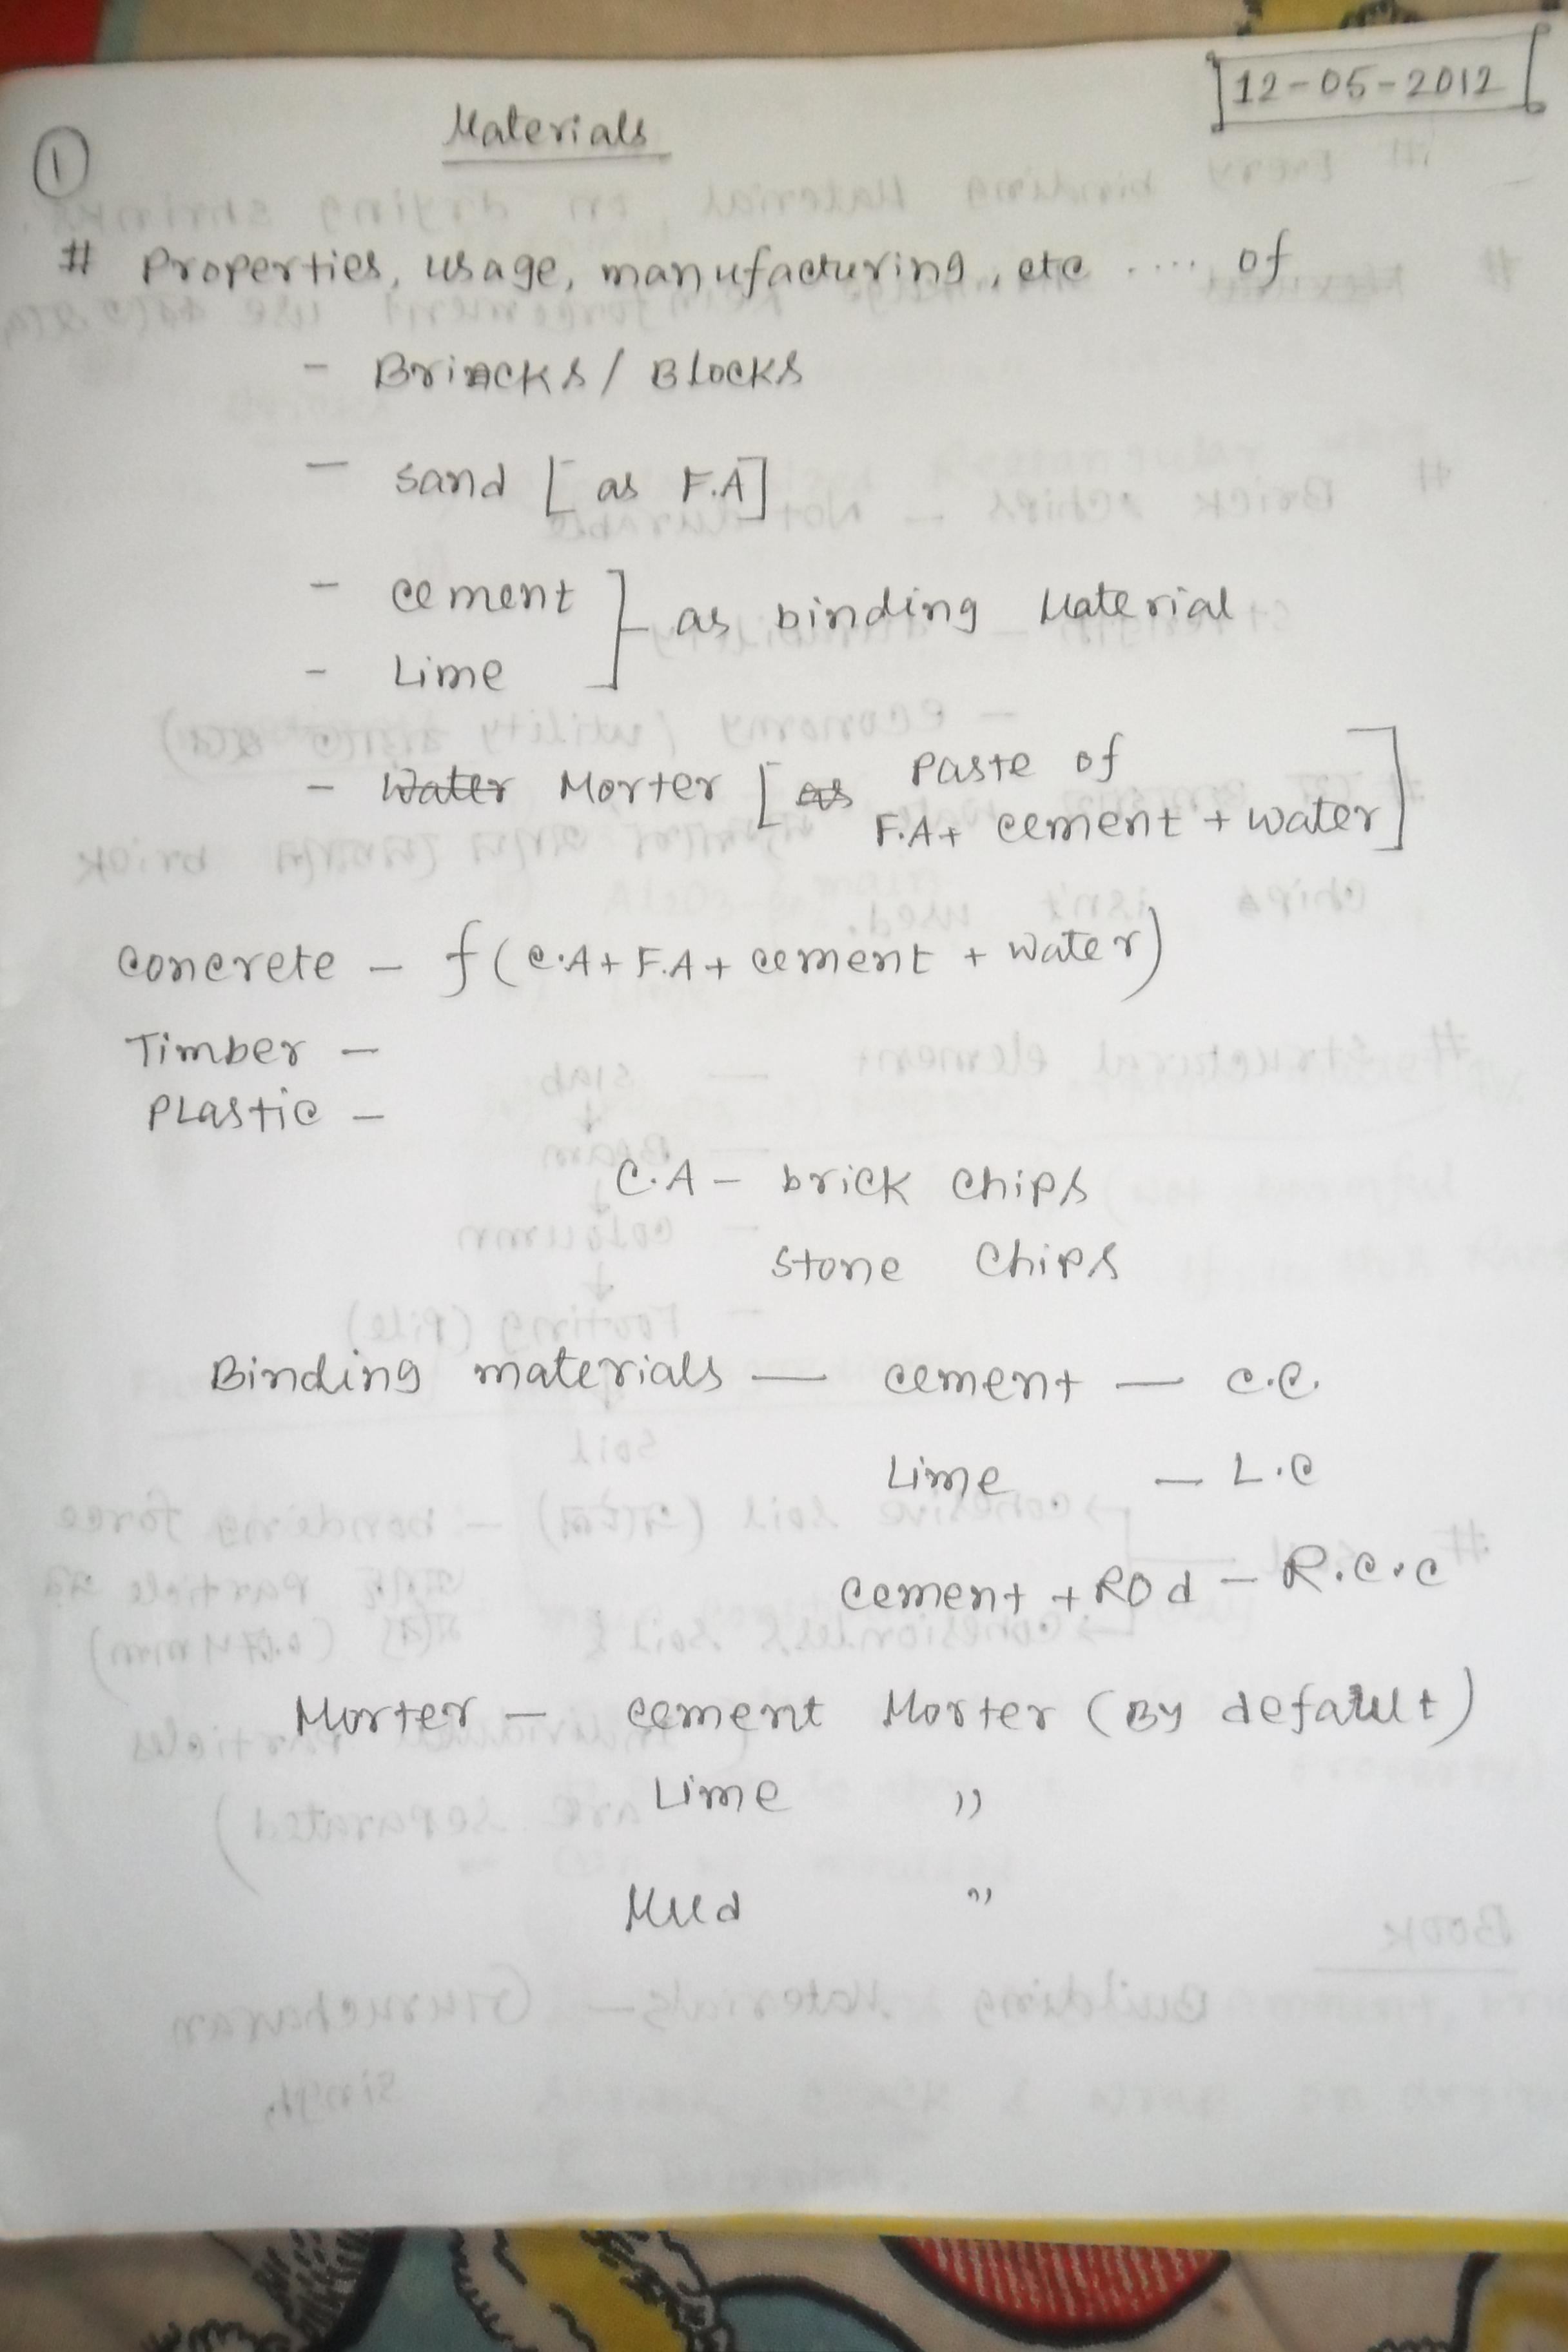 12-05-2012
Materials
①
# Properties, usage, manufacturing, etc .... of
- Briacks / Blocks
- sand [as F.A]
- cement
- Lime
] as binding Material
- Water Morter [as Paste of
F.A + cement + water]
concrete - f(C.A + F.A + cement + water)
Timber -
Plastic -
C.A - brick chips
stone chips
Binding materials — cement — C.C.
Lime — L.C
cement + Rod - R.C.C
Morter - cement Morter (By default)
Lime "
Mud "